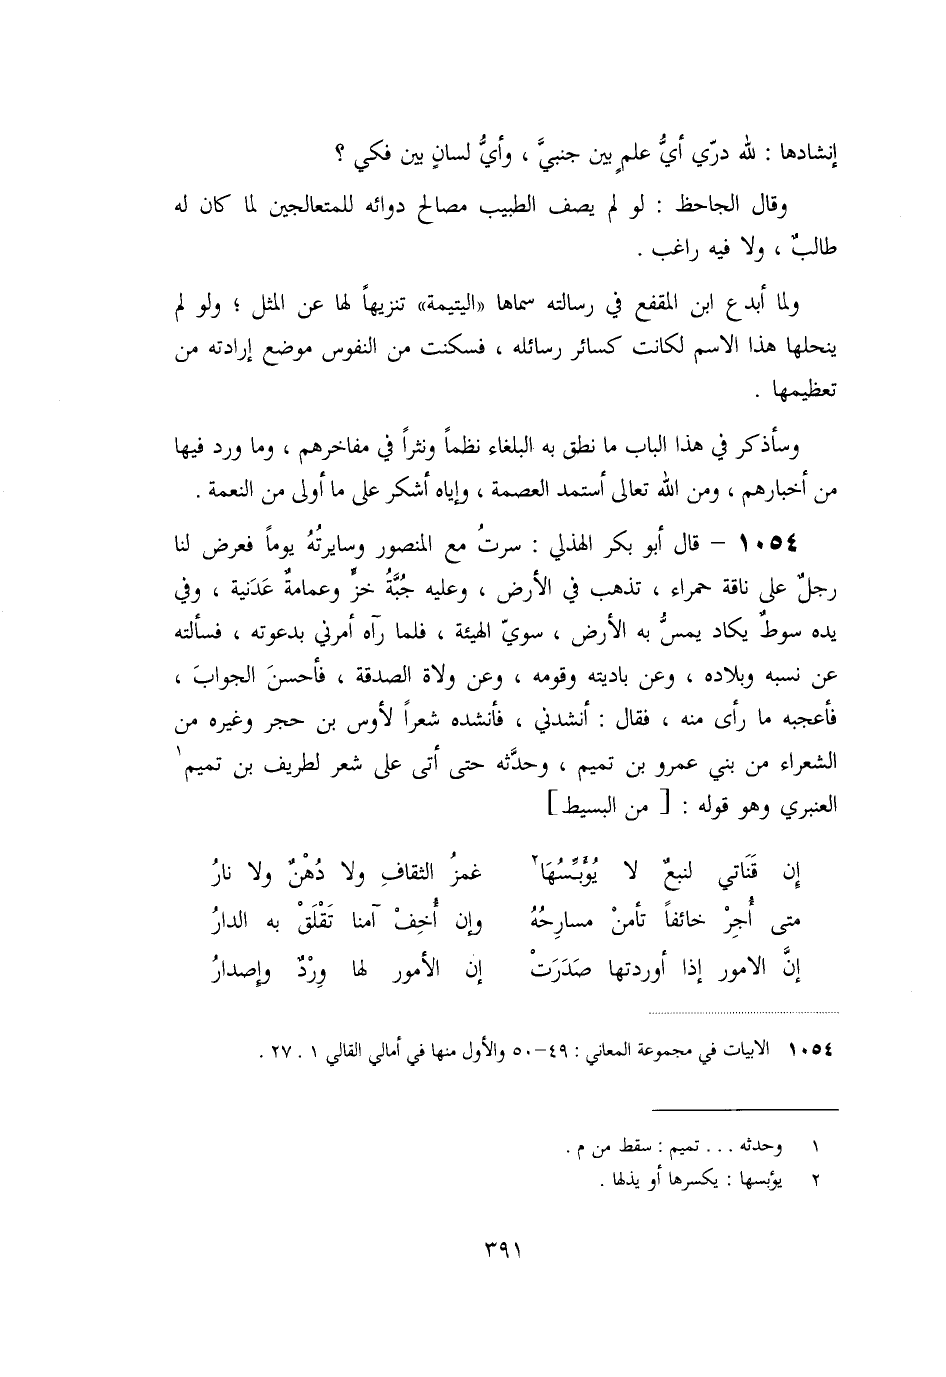 إنشادها : لله درّي أيُّ علمٍ بين جنبيَّ ، وأيُّ لسانٍ بين فكي ؟
وقال الجاحظ : لو لم يصف الطبيب مصالح دوائه للمتعالجين لما كان له
طالبٌ ، ولا فيه راغب .
ولما أبدع ابن المقفع في رسالته سماها «اليتيمة» تنزيهاً لها عن المثل ؛ ولو لم
ينحلها هذا الاسم لكانت كسائر رسائله ، فسكنت من النفوس موضع إرادته من
تعظيمها .
وسأذكر في هذا الباب ما نطق به البلغاء نظماً ونثراً في مفاخرهم ، وما ورد فيها
من أخبارهم ، ومن الله تعالى أستمد العصمة ، وإياه أشكر على ما أولى من النعمة .
١٠٥٤ – قال أبو بكر الهذلي : سرتُ مع المنصور وسايرتُهُ يوماً فعرض لنا
رجلٌ على ناقة حمراء ، تذهب في الأرض ، وعليه جُبَّةُ خزٍّ وعمامةٌ عَدَنية ، وفي
يده سوطٌ يكاد يمسُّ به الأرض ، سويّ الهيئة ، فلما رآه أمرني بدعوته ، فسألته
عن نسبه وبلاده ، وعن باديته وقومه ، وعن ولاة الصدقة ، فأحسنَ الجوابَ ،
فأعجبه ما رأى منه ، فقال : أنشدني ، فأنشده شعراً لأوس بن حجر وغيره من
الشعراء من بني عمرو بن تميم ، وحدَّثه حتى أتى على شعر لطريف بن تميم١
العنبري وهو قوله : [ من البسيط ]
إن قَنَاتي لنبعٌ لا يُؤَبِّسُهَا٢ غمزُ الثقافِ ولا دُهْنٌ ولا نارُ
متى أُجِرْ خائفاً تأمنْ مسارِحُهُ وإن أُخِفْ آمنا تَقْلَقْ به الدارُ
إنَّ الامور إذا أوردتها صَدَرَتْ إن الأمور لها وِرْدٌ وإصدارُ
١٠٥٤ الابيات في مجموعة المعاني : ٤٩–٥٠ والأول منها في أمالي القالي ١ . ٢٧ .
١ وحدثه ... تميم : سقط من م .
٢ يؤبسها : يكسرها أو يذلها .
٣٩١